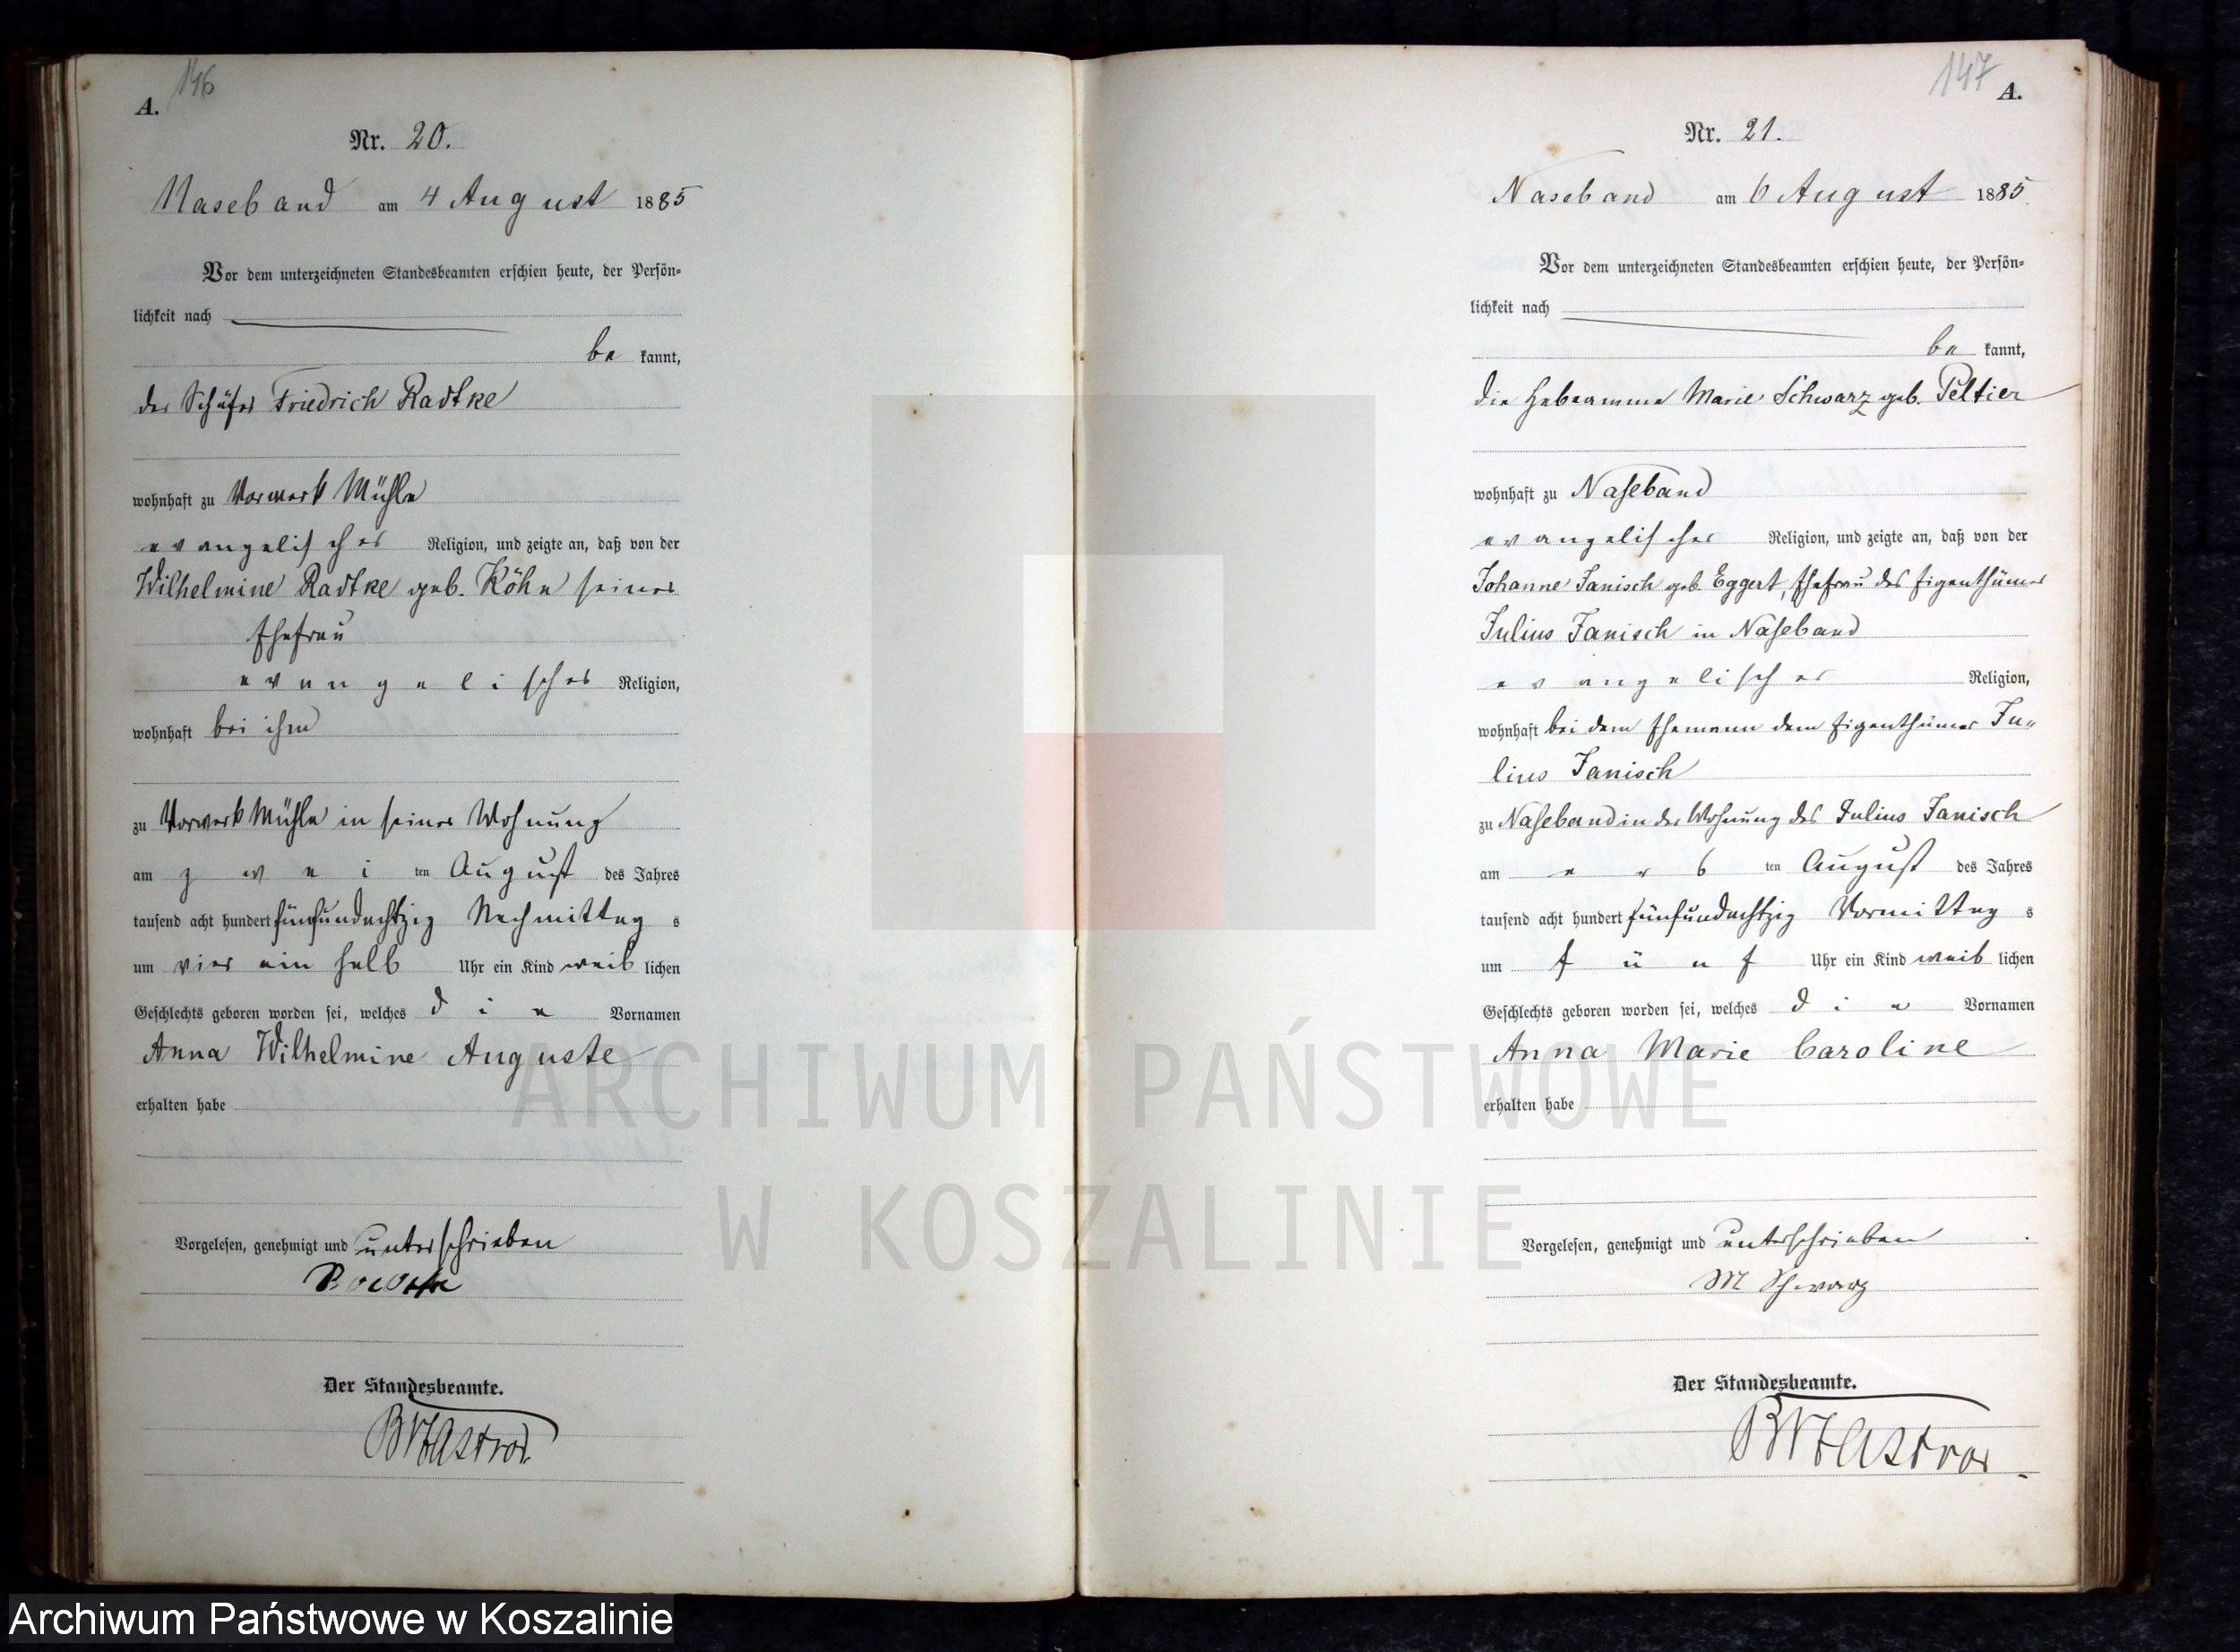 146
A.
Nr. 20.
Naseband am 4 August 1885
Vor dem unterzeichneten Standesbeamten erschien heute, der Persön-
lichkeit nach
be kannt,
der Schäfer Friedrich Radtke
wohnhaft zu Vorwerk Mühle
evangelischer Religion, und zeigte an, daß von der
Wilhelmine Radtke geb. Köhn seiner
Ehefrau
evangelischer Religion,
wohnhaft bei ihm
zu Vorwerk Mühle in seiner Wohnung
am zwei ten August des Jahres
tausend acht hundert fünfundachtzig Nachmittag s
um vier ein halb Uhr ein Kind weib lichen
Geschlechts geboren worden sei, welches die Vornamen
Anna Wilhelmine Auguste
erhalten habe
Vorgelesen, genehmigt und unterschrieben
Der Standesbeamte.
147
A.
Nr. 21.
Naseband am 6 August 1885
Vor dem unterzeichneten Standesbeamten erschien heute, der Persön-
lichkeit nach
be kannt,
die Hebeamme Marie Schwarz geb. Peltier
wohnhaft zu Naseband
evangelischer Religion, und zeigte an, daß von der
Johanne Janisch geb. Eggert, Ehefrau des Eigenthümer
Julius Janisch in Naseband
evangelischer Religion,
wohnhaft bei dem Ehemann dem Eigenthümer Ju-
lius Janisch
zu Naseband in der Wohnung des Julius Janisch
am ers ten August des Jahres
tausend acht hundert fünfundachtzig Vormittag s
um fünf Uhr ein Kind weib lichen
Geschlechts geboren worden sei, welches die Vornamen
Anna Marie Caroline
erhalten habe
Vorgelesen, genehmigt und unterschrieben
M Schwarz
Der Standesbeamte.
ARCHIWUM PAŃSTWOWE
W KOSZALINIE
Archiwum Państwowe w Koszalinie